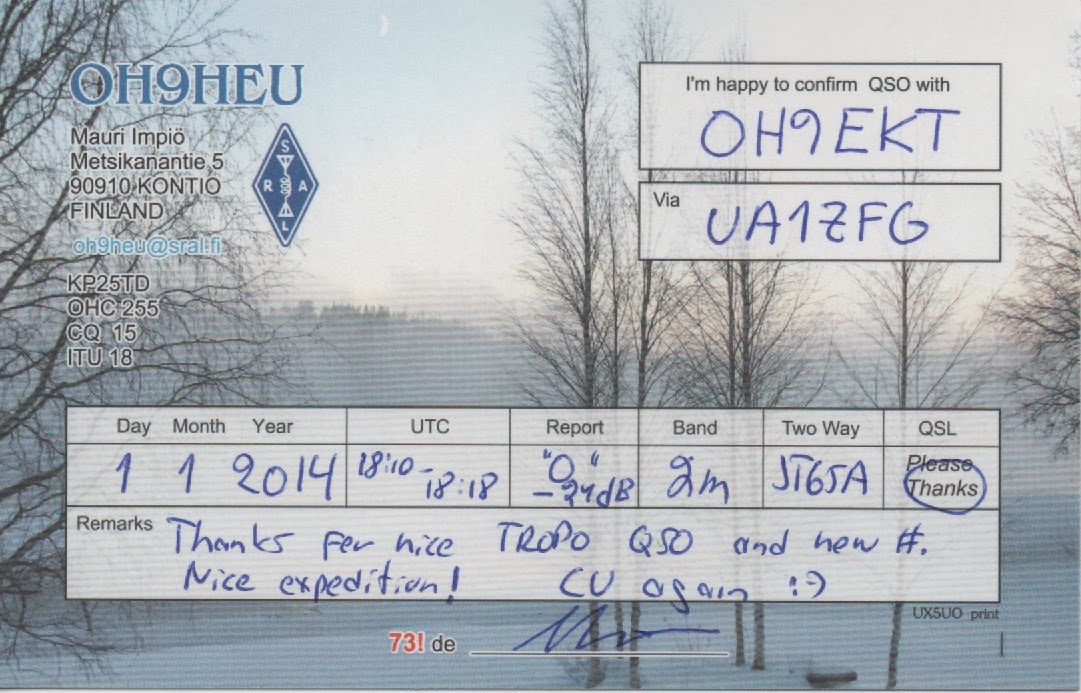 OH9HEU
Mauri Impiö
Metsikanantie 5
90910 KONTIO
FINLAND
oh9heu@sral.fi
KP25TD
OHC 255
CQ 15
ITU 18
S
R A
L
I'm happy to confirm QSO with
OH9EKT
Via
UA1ZFG
Day Month Year UTC Report Band Two Way QSL
1 1 2014 18:10-18:18 "O" -24dB 2m JT65A Please Thanks
Remarks Thanks fer nice TROPO QSO and new #.
Nice expedition! CU again :-)
UX5UO print
73! de